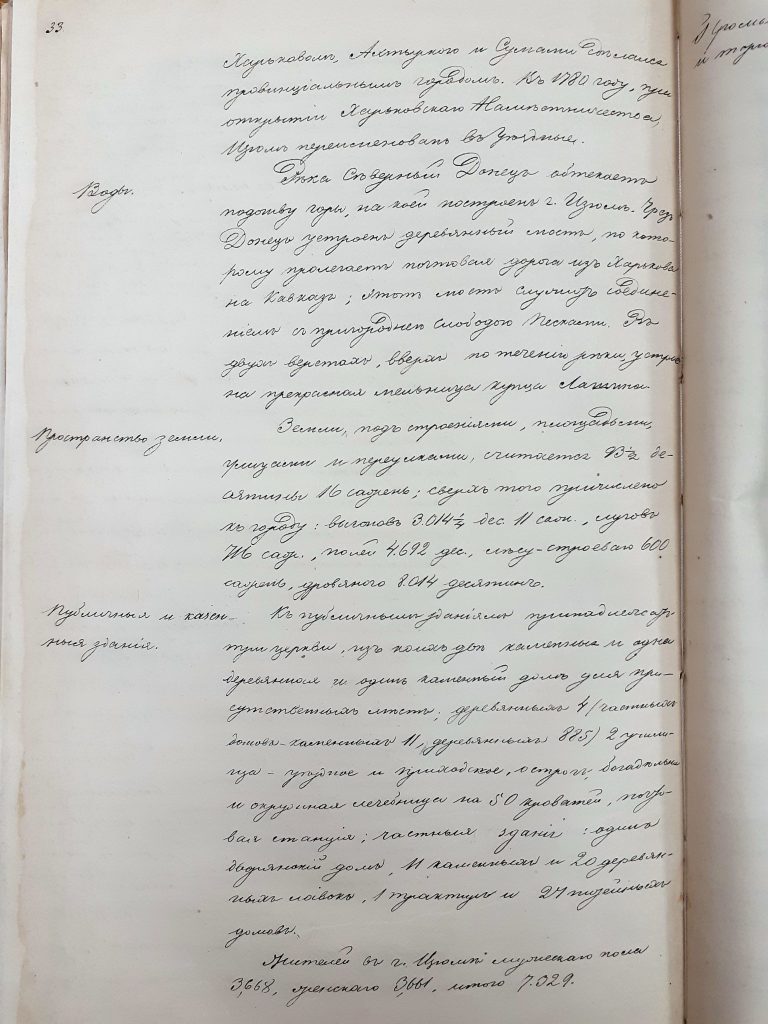 33
Харьковомъ, Ахтыркою и Сумами сдѣлался
провинціальнымъ городомъ. Къ 1780 году, при
открытіи Харьковскаго Намѣстничества,
Изюмъ переименованъ въ уѣздные.
Воды.
Рѣка Сѣверный Донецъ обтекаетъ
подошву горы, на коей построенъ г. Изюмъ. Чрезъ
Донецъ устроенъ деревянный мостъ, по кото-
рому пролегаетъ почтовая дорога изъ Харькова
на Кавказъ; этотъ мостъ служитъ соедине-
ніемъ съ пригороднею слободою Песками. Въ
двухъ верстахъ, вверхъ по теченію рѣки, устрое-
на прекрасная мельница купца
Пространство земли.
Земли, подъ строеніями, площадьми,
улицами и переулками, считается 13½ де-
сятины 16 сажень; сверхъ того причислено
къ городу: выгоновъ 3.014½ дес. 11 саж., луговъ
саж., полей 4.692 дес., лѣсу-строеваго 600
сажень, дровяного 8.014 десятинъ.
Публичныя и казен-
ныя зданія.
Къ публичнымъ зданіямъ принадлежатъ
три церкви, изъ коихъ двѣ каменныя и одна
деревянная и одинъ каменный домъ для при-
сутственныхъ мѣстъ; деревянныхъ 4 (частныхъ
домовъ-каменныхъ 11, деревянныхъ 885) 2 учили-
ща - уѣздное и приходское, острогъ, богадѣльня
и окружная лечебница на 50 кроватей, почто-
вая станція; частныя зданія: одинъ
домъ, 11 каменныхъ и 20 деревян-
ныхъ лавокъ, 1 трактиръ и 27 питейныхъ
домовъ.
Жителей въ г. Изюмѣ мужескаго пола
3,668, женскаго 3,661, итого 7.329.